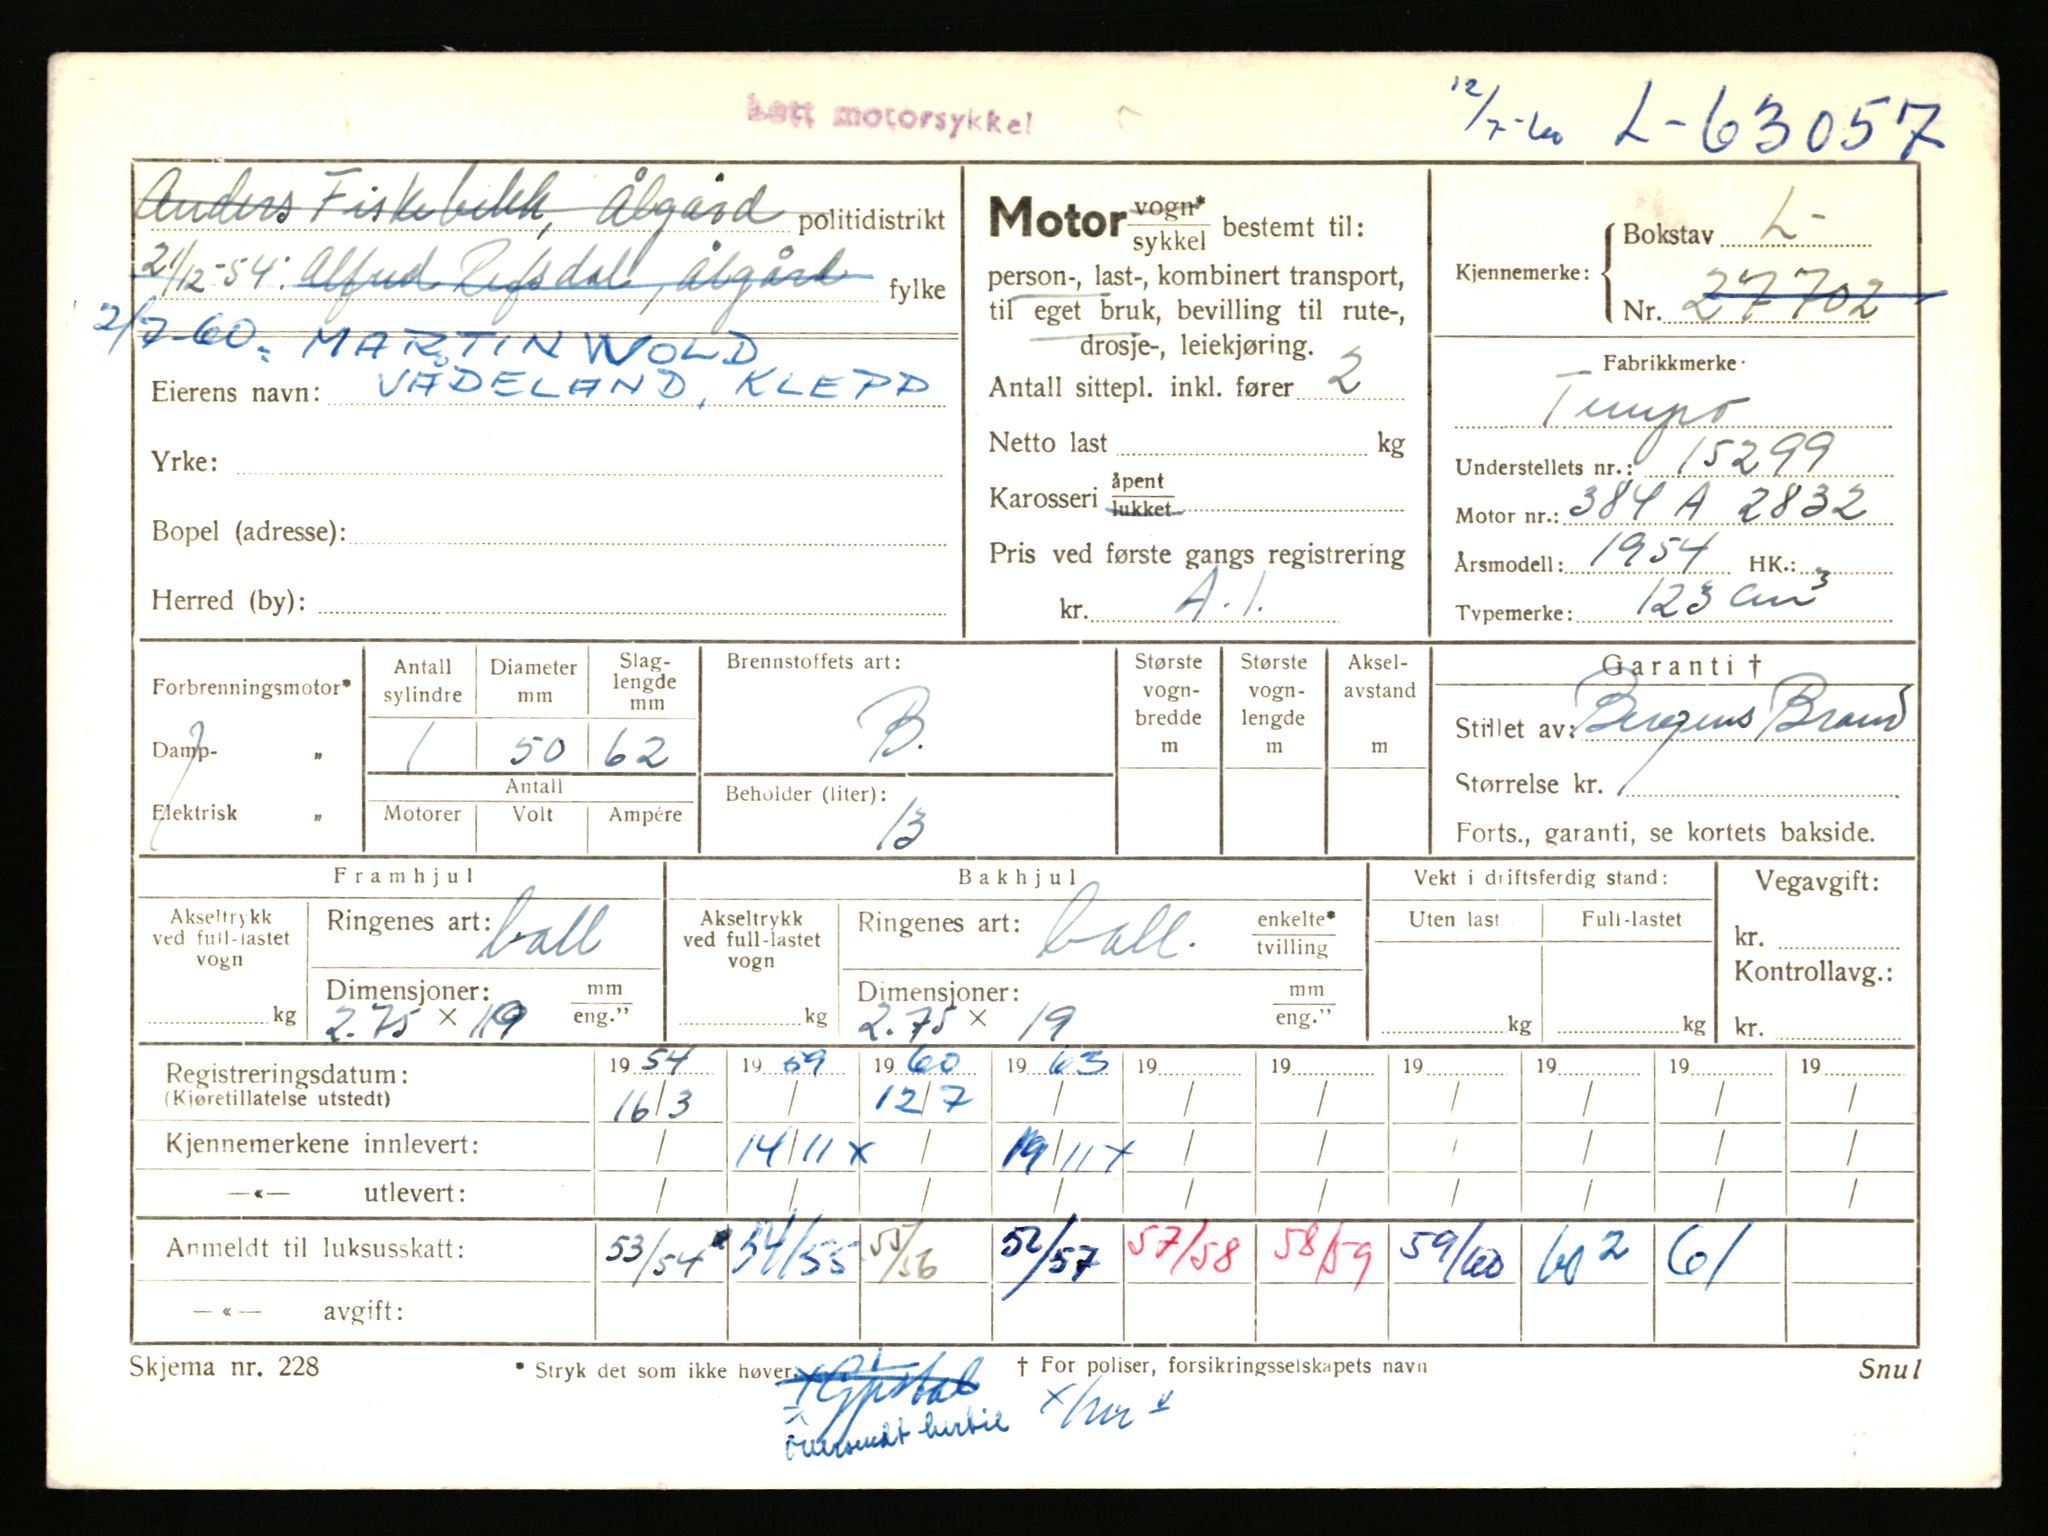 Lett motorsykkel
12/7-60 L-63057
Anders Fiskebekk, Ålgård politidistrikt
21/12-54: Alfred Refsdal, Ålgård fylke
2/7-60: MARTIN WOLD
Eierens navn: VÅDELAND, KLEPP
Yrke:
Bopel (adresse):
Herred (by):
Motor vogn*/sykkel bestemt til:
person-, last-, kombinert transport,
til eget bruk, bevilling til rute-,
drosje-, leiekjøring.
Antall sittepl. inkl. fører 2
Netto last kg
Karosseri åpent/lukket
Pris ved første gangs registrering
kr. A.1.
Kjennemerke: Bokstav L-
Nr. 27702
Fabrikkmerke
Tempo
Understellets nr.: 15299
Motor nr.: 384 A 2832
Årsmodell: 1954 HK.:
Typemerke: 123 cm³
Forbrenningsmotor*
Damp- „
Elektrisk „
Antall sylindre 1
Diameter mm 50
Slaglengde mm 62
Antall
Motorer Volt Ampére
Brennstoffets art:
B.
Beholder (liter):
13
Største vognbredde m
Største vognlengde m
Akselavstand m
Garanti †
Stillet av: Bergens Brand
Størrelse kr.
Forts., garanti, se kortets bakside.
Framhjul
Akseltrykk ved full-lastet vogn kg
Ringenes art: ball
Dimensjoner: mm/eng."
2.75 × 19
Bakhjul
Akseltrykk ved full-lastet vogn kg
Ringenes art: ball. enkelte*/tvilling
Dimensjoner: mm/eng."
2.75 × 19
Vekt i driftsferdig stand:
Uten last Full-lastet
kg kg
Vegavgift:
kr.
Kontrollavg.:
kr.
Registreringsdatum: 19 54 19 59 19 60 19 63 19 19 19 19 19 19
(Kjøretillatelse utstedt) 16/3 / 12/7 / / / / / / /
Kjennemerkene innlevert: / 14/11 x / 19/11 x / / / / / /
—«— utlevert: / / / / / / / / / /
Anmeldt til luksusskatt: 53/54 54/55 55/56 56/57 57/58 58/59 59/60 60 2 61
—«— avgift:
Skjema nr. 228 * Stryk det som ikke høver. † For poliser, forsikringsselskapets navn Snul
oversendt hertil